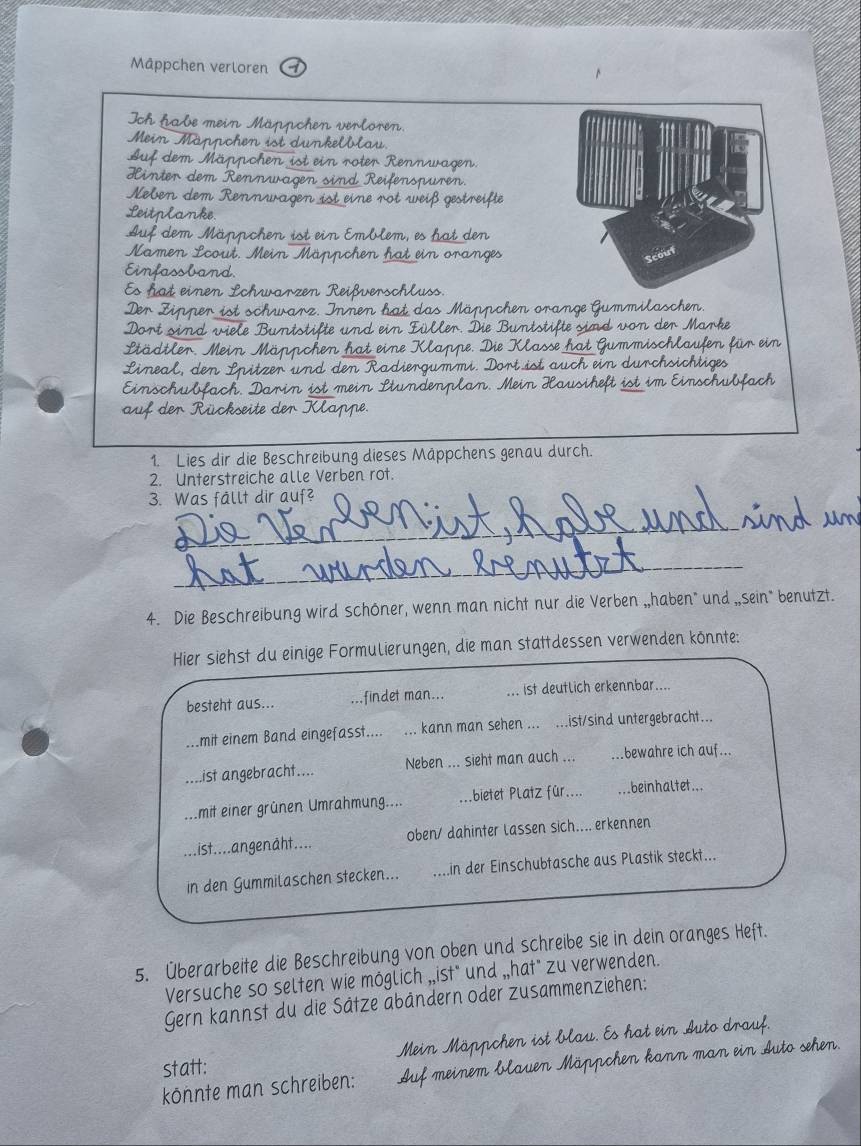 Mäppchen verloren 1
Ich habe mein Mäppchen verloren.
Mein Mäppchen ist dunkelblau.
Auf dem Mäppchen ist ein roter Rennwagen.
Hinter dem Rennwagen sind Reifenspuren.
Neben dem Rennwagen ist eine rot weiß gestreifte
Leitplanke.
Auf dem Mäppchen ist ein Emblem, es hat den
Namen Scout. Mein Mäppchen hat ein oranges
Einfassband.
Es hat einen Schwarzen Reißverschluss.
Der Zipper ist schwarz. Innen hat das Mäppchen orange Gummilaschen.
Dort sind viele Buntstifte und ein Füller. Die Buntstifte sind von der Marke
Städtler. Mein Mäppchen hat eine Klappe. Die Klasse hat Gummischlaufen für ein
Lineal, den Spitzer und den Radiergummi. Dort ist auch ein durchsichtiges
Einschubfach. Darin ist mein Stundenplan. Mein Hausiheft ist im Einschubfach
auf der Rückseite der Klappe.
Scout
1. Lies dir die Beschreibung dieses Mäppchens genau durch.
2. Unterstreiche alle Verben rot.
3. Was fällt dir auf?
Die Verben ist, habe und sind un
hat wurden benutzt
4. Die Beschreibung wird schöner, wenn man nicht nur die Verben „haben" und „sein" benutzt.
Hier siehst du einige Formulierungen, die man stattdessen verwenden könnte:
besteht aus... ...findet man... ... ist deutlich erkennbar....
...mit einem Band eingefasst.... ... kann man sehen ... ...ist/sind untergebracht...
....ist angebracht.... Neben ... sieht man auch ... ...bewahre ich auf...
...mit einer grünen Umrahmung.... ...bietet Platz für.... ...beinhaltet...
...ist....angenäht.... oben/ dahinter lassen sich.... erkennen
in den Gummilaschen stecken... ....in der Einschubtasche aus Plastik steckt...
5. Überarbeite die Beschreibung von oben und schreibe sie in dein oranges Heft.
Versuche so selten wie möglich „ist" und „hat" zu verwenden.
Gern kannst du die Sätze abändern oder zusammenziehen:
statt: Mein Mäppchen ist blau. Es hat ein Auto drauf.
könnte man schreiben: Auf meinem blauen Mäppchen kann man ein Auto sehen.